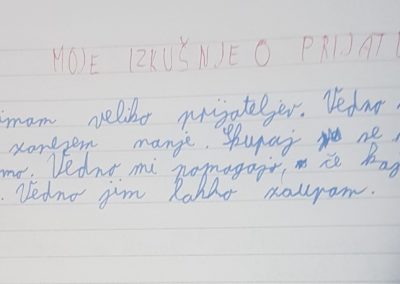 MOJE IZKUŠNJE O PRIJAT
imam veliko prijateljev. Vedno
zanesem nanje. Skupaj se
mo. Vedno mi pomagajo, če
. Vedno jim lahko zaupam.